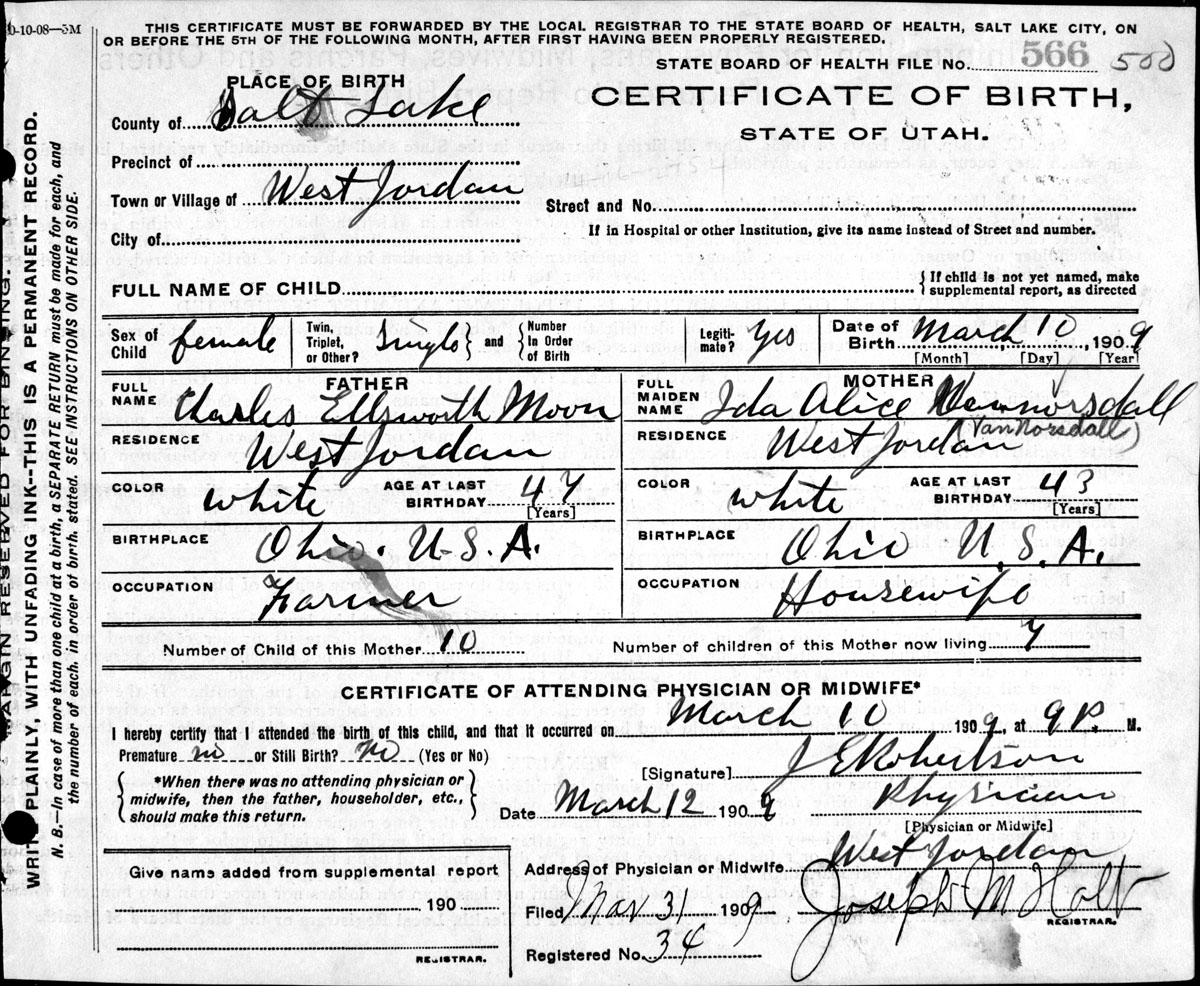 0-10-08—5M
THIS CERTIFICATE MUST BE FORWARDED BY THE LOCAL REGISTRAR TO THE STATE BOARD OF HEALTH, SALT LAKE CITY, ON
OR BEFORE THE 5TH OF THE FOLLOWING MONTH, AFTER FIRST HAVING BEEN PROPERLY REGISTERED.
STATE BOARD OF HEALTH FILE No. 566 500
PLACE OF BIRTH
County of Salt Lake
CERTIFICATE OF BIRTH,
STATE OF UTAH.
Precinct of
Town or Village of West Jordan
Street and No.
City of
If in Hospital or other Institution, give its name instead of Street and number.
FULL NAME OF CHILD
{If child is not yet named, make
supplemental report, as directed
Sex of Child female
Twin, Triplet, or Other? Single } and { Number In Order of Birth
Legitimate? Yes
Date of Birth March 10, 1909
[Month] [Day] [Year]
FATHER
FULL NAME Charles Ellsworth Moon
RESIDENCE West Jordan
COLOR white AGE AT LAST BIRTHDAY 47
[Years]
BIRTHPLACE Ohio. U.S.A.
OCCUPATION Farmer
MOTHER
FULL MAIDEN NAME Ida Alice Vannorsdall
(VanNorsdall)
RESIDENCE West Jordan
COLOR white AGE AT LAST BIRTHDAY 43
[Years]
BIRTHPLACE Ohio U.S.A.
OCCUPATION Housewife
Number of Child of this Mother 10
Number of children of this Mother now living 7
CERTIFICATE OF ATTENDING PHYSICIAN OR MIDWIFE*
I hereby certify that I attended the birth of this child, and that it occurred on March 10 1909, at 9 P. M.
Premature no or Still Birth? no (Yes or No)
{ *When there was no attending physician or
midwife, then the father, householder, etc.,
should make this return. }
[Signature] J E Robertson
Date March 12 1909
Physician
[Physician or Midwife]
Address of Physician or Midwife West Jordan
Give name added from supplemental report
190
REGISTRAR.
Filed Mar 31 1909 Joseph M Holt
REGISTRAR.
Registered No. 34
MARGIN RESERVED FOR BINDING.
WRITE PLAINLY, WITH UNFADING INK--THIS IS A PERMANENT RECORD.
N. B.—In case of more than one child at a birth, a SEPARATE RETURN must be made for each, and
the number of each, in order of birth, stated. SEE INSTRUCTIONS ON OTHER SIDE.